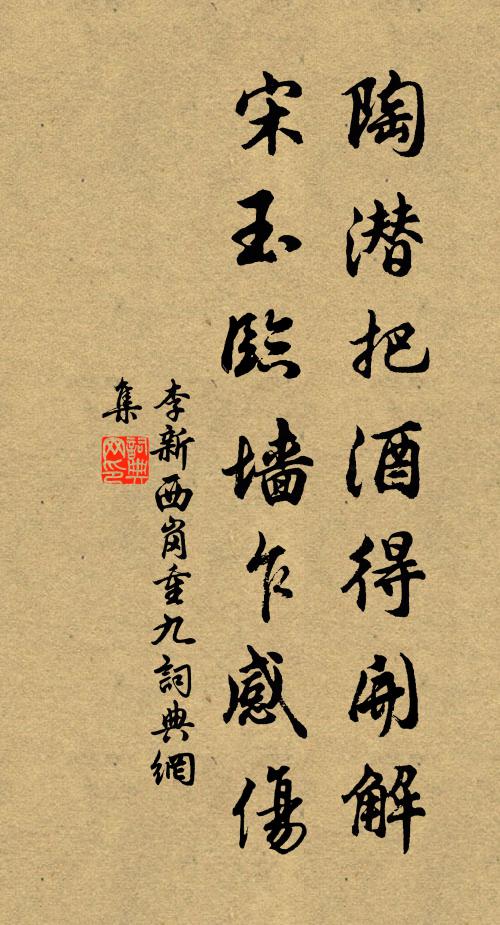 陶潜把酒得開解
宋玉臨墻乍感傷
李新西崗重九詞典網
集
詞典網印